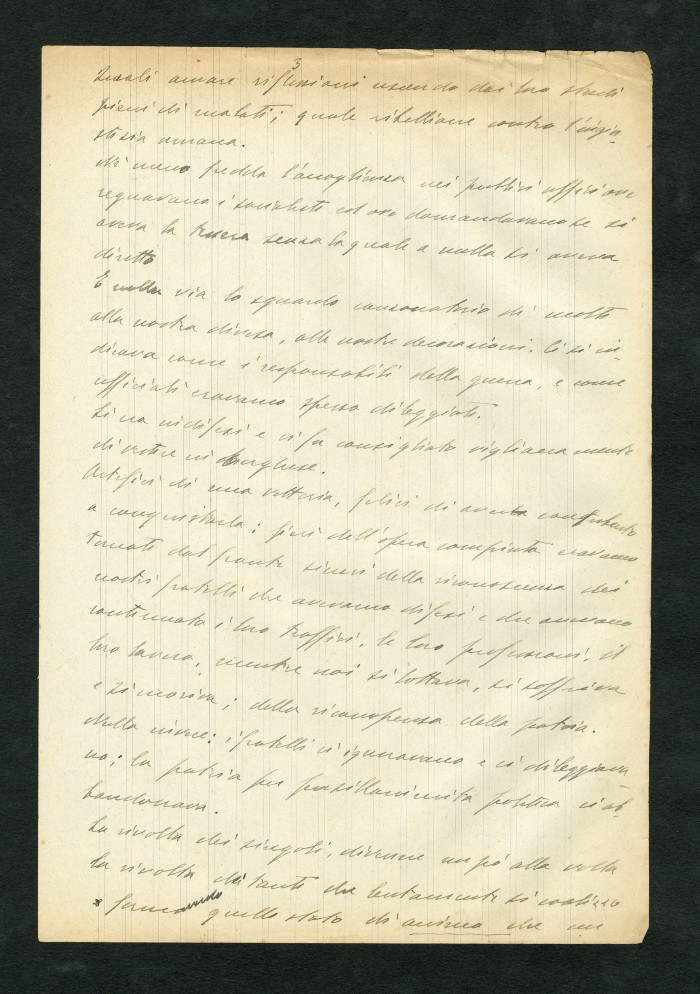 3
Quali amare riflessioni uscendo dai loro studi
pieni di malati; quale ribellione contro l'ingiu-
stizia umana.
Nè meno fredda l'accoglienza nei pubblici uffici ove
regnavano i socialisti ed ove domandavano se si
aveva la tessera senza la quale a nulla si aveva
diritto
E nella via lo sguardo canzonatorio di molti
alla nostra divisa, alle nostre decorazioni. Ci si in-
dicava come i responsabili della guerra, e come
ufficiali eravamo spesso dileggiati.
Si era indifesi e ci fu consigliato vigliaccamente
di vestire in borghese.
Artefici di una vittoria, felici di aver contribuito
a conquistarla; fieri dell'opera compiuta eravamo
tornati dal fronte sicuri della riconoscenza dei
nostri fratelli che avevamo difesi e che avevano
continuato i loro traffici, le loro professioni, il
loro lavoro, mentre noi si lottava, si soffriva
e si moriva; della riconoscenza della patria.
Nulla invece: i fratelli ci ignoravano e ci dileggiava
no; la patria per pusillanimità politica ci ab-
bandonava.
La rivolta dei singoli, divenne un pó alla volta
la rivolta di tanti che lentamente si
formando quello stato di animo che un